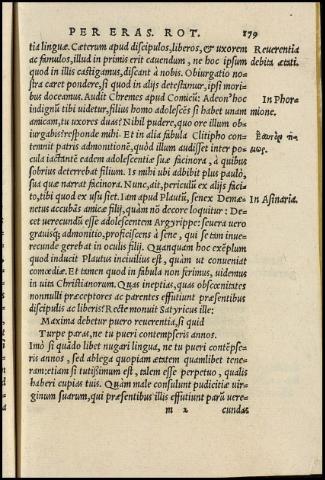 PER ERAS. ROT. 179
tiā linguæ. Cæterum apud discipulos, liberos, & uxorem
ac famulos, illud in primis erit cauendum, ne hoc ipsum
quod in illis castigamus, discāt à nobis. Obiurgatio no-
stra caret pondere, si quod in alijs detestamur, ipsi mori-
bus doceamus. Audit Chremes apud Comicū: Adeon' hoc
indignū tibi uidetur, filius homo adolescēs si habet unam
amicam, tu uxores duas? Nihil pudere, quo ore illum ob-
iurgabis? responde mihi. Et in alia fabula Clitipho con-
temnit patris admonitionē, quòd illum audisset inter po-
cula iactantē eadem adolescentiæ suæ facinora, à quibus
sobrius deterrebat filium. Is mihi ubi adbibit plus paulò,
sua quæ narrat facinora. Nunc, ait, periculū ex alijs faci-
to, tibi quod ex usu siet. Iam apud Plautū, senex Demæ-
netus accubās amicæ filij, quàm nō decore loquitur: De-
cet uerecundū esse adolescentem Argyrippe: seuera uero
grauisq́; admonitio, proficiscens à sene, qui se tam inue-
recunde gerebat in oculis filij. Quanquam hoc exēplum
quod inducit Plautus inciuilius est, quàm ut conueniat
comœdiæ. Et tamen quod in fabula non ferimus, uidemus
in uita Christianorum. Quas ineptias, quas obscœnitates
nonnulli præceptores ac parentes effutiunt præsentibus
discipulis ac liberis? Recte monuit Satyricus ille:
Maxima debetur puero reuerentia, si quid
Turpe paras, ne tu pueri contempseris annos.
Imò si quādo libet nugari lingua, ne tu pueri contēpse-
ris annos, sed ablega quopiam ætatem quamlibet tene-
ram: etiam si tutissimum est, talem esse perpetuo, qualis
haberi cupias tuis. Quàm male consulunt pudicitiæ uir-
ginum suarum, qui præsentibus illis effutiunt parū uere-
m 2 cundas
Reuerentia
debita ætati.
In Phor-
mione.
In Asinaria.